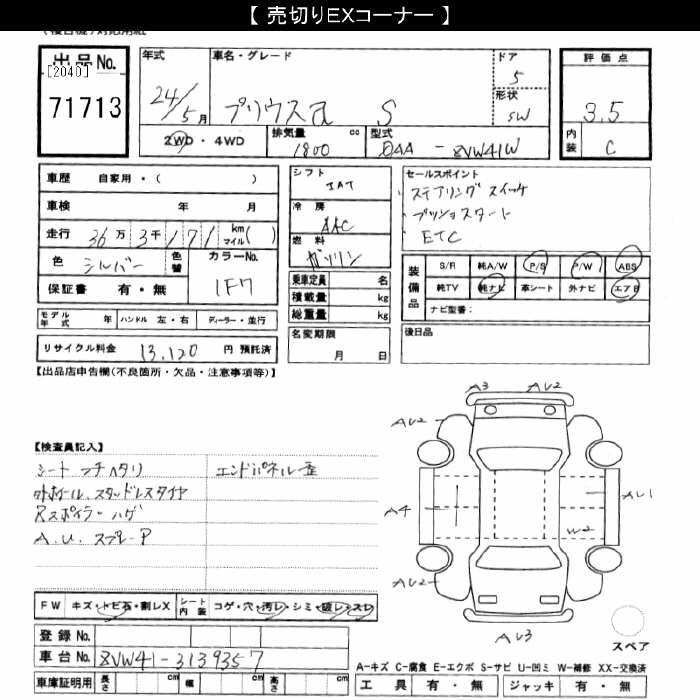 【 売切りEXコーナー 】
出品No.
[2040]
71713
年式
24/5月
車名・グレード
プリウスα S
ドア
5
形状
SW
2WD・4WD
排気量 cc
1800
型式
DAA - ZVW41W
評価点
3.5
内装
C
車歴 自家用・( )
車検 年 月
走行 36万 3千 171 km マイル( )
色 シルバー
色替
カラーNo.
1F7
保証書 有・無
モデル年式 年 ハンドル 左・右 ディーラー・並行
リサイクル料金 13,120 円 預託済
シフト
IAT
冷房
AAC
燃料
ガソリン
乗車定員 名
積載量 kg
総重量 kg
名変期限
月 日
セールスポイント
ステアリングスイッチ
プッシュスタート
ETC
装備品
S/R 純A/W P/S P/W ABS
純TV 純ナビ 革シート 外ナビ エアB
ナビ型番:
後日品
【出品店申告欄(不良箇所・欠品・注意事項等)】
【検査員記入】
シート フチヘタリ エンドパネル歪
外ホイール、スタッドレスタイヤ
Rスポイラー ハゲ
A.U. スプレーP
A3 AU2
AU2
A4
AU1
W2
AU2
AU3
スペア
FW キズ・トビ石・割レX
シート内装 コゲ・穴・汚レ・シミ・破レ・スレ
登録No.
車台No. ZVW41-3139357
車庫証明用 長さ cm 幅 cm 高さ cm
A-キズ C-腐食 E-エクボ S-サビ U-凹ミ W-補修 XX-交換済
工具 有・無 ジャッキ 有・無